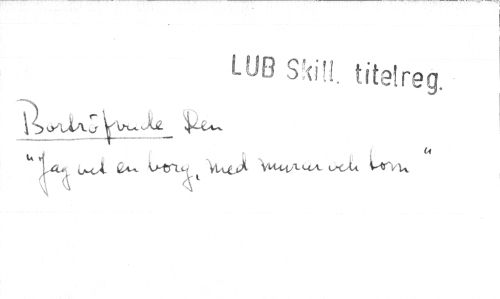 LUB Skill. titelreg.
Bortröfvade Den
"Jag vet en borg, med murar och torn"